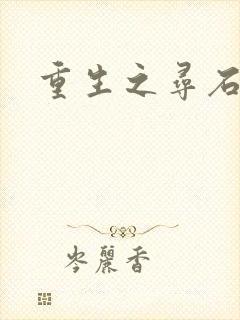 重生之尋石
岑麗香